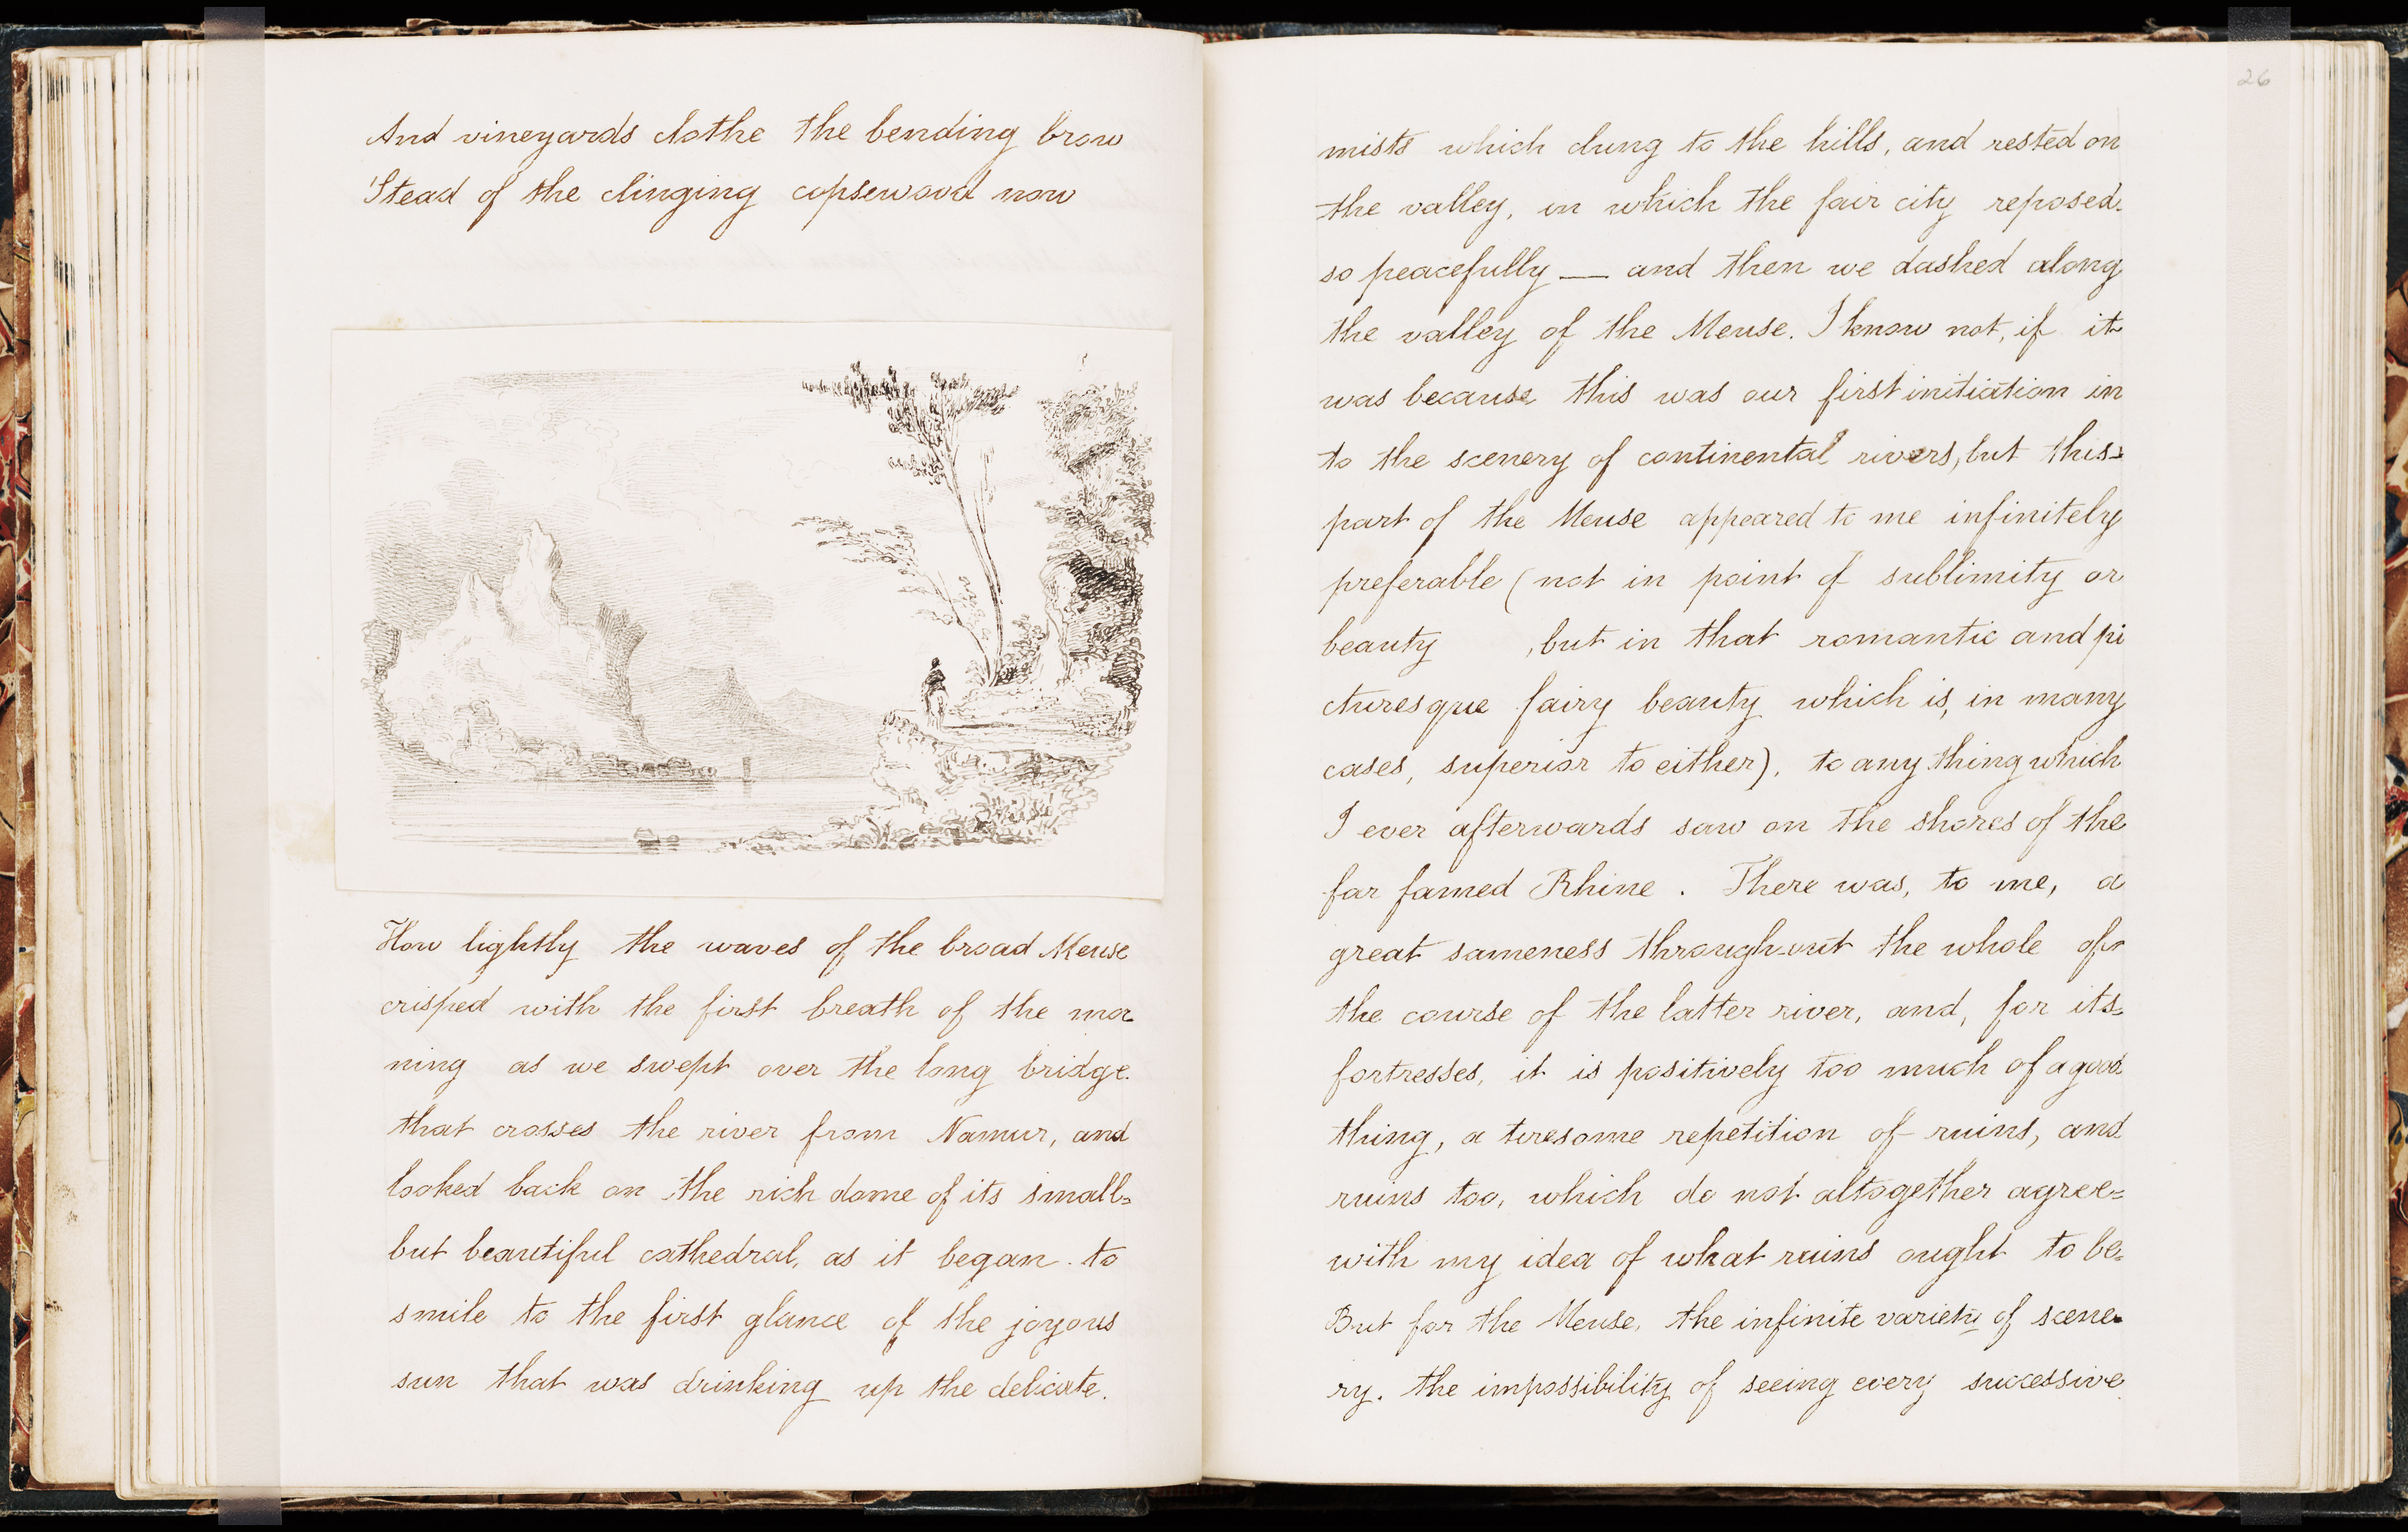 And vineyards clothe the bending brow
'Stead of the clinging copsewood now
How lightly the waves of the broad Meuse
crisped with the first breath of the mor
ning as we swept over the long bridge
that crosses the river from Namur, and
looked back on the rich dome of its small
but beautiful cathedral, as it began to
smile to the first glance of the joyous
sun that was drinking up the delicate.
26
mists which clung to the hills, and rested on
the valley, in which the fair city reposed
so peacefully — and then we dashed along
the valley of the Meuse. I know not, if it
was because this was our first initiation in
to the scenery of continental rivers, but this
part of the Meuse appeared to me infinitely
preferable (not in point of sublimity or
beauty , but in that romantic and pi
cturesque fairy beauty which is, in many
cases, superior to either), to any thing which
I ever afterwards saw on the shores of the
far famed Rhine . There was, to me, a
great sameness through-out the whole of
the course of the latter river, and, for its
fortresses, it is positively too much of a good
thing, a tiresome repetition of ruins, and
ruins too, which do not altogether agree
with my idea of what ruins ought to be
But for the Meuse, the infinite variety of scene
ry. the impossibility of seeing every successive